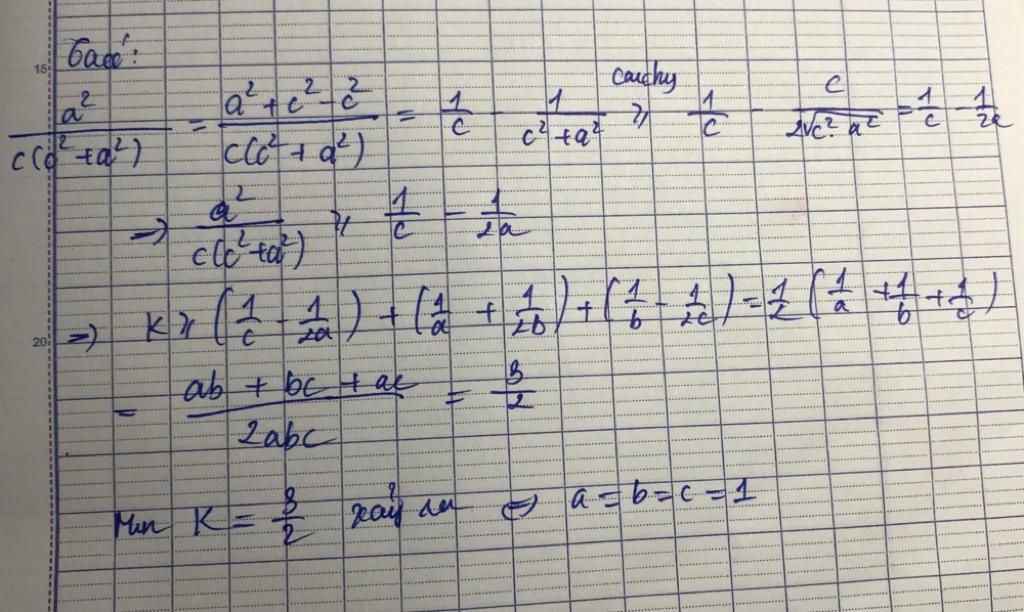 15
Cauchy
a²/(c(c²+a²)) = (a²+c²-c²)/(c(c²+a²)) = 1/c - 1/(c²+a²) ≥ 1/c - c/(2√(c²·a²)) = 1/c - 1/(2a)
⇒ a²/(c(c²+a²)) ≥ 1/c - 1/(2a)
20
⇒ K ≥ (1/c - 1/(2a)) + (1/a + 1/(2b)) + (1/b - 1/(2c)) = 1/2 (1/a + 1/b + 1/c)
= (ab + bc + ac)/(2abc) = 3/2
Min K = 3/2 xảy ra ⇔ a = b = c = 1